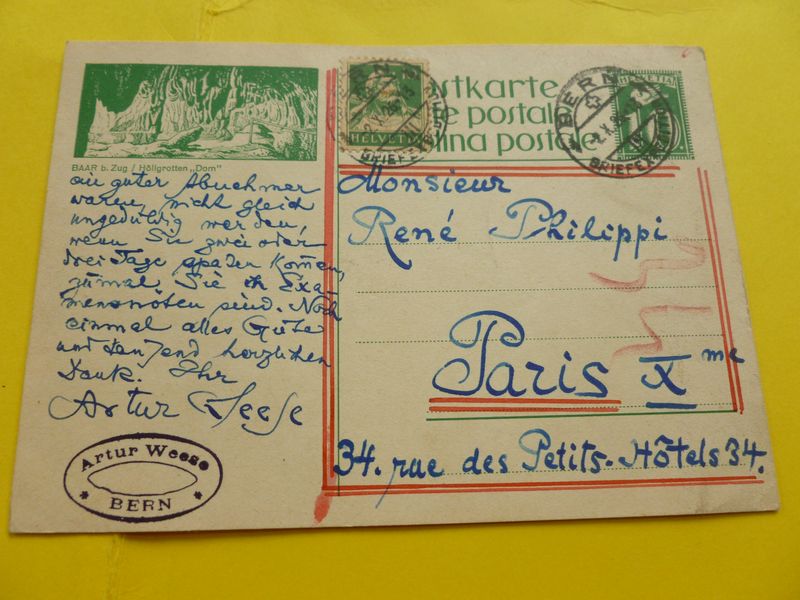 BAAR b. Zug / Höllgrotten „Dom"
ein guter Abnehmer
waren, nicht gleich
ungeduldig werden,
wenn Sie zwei oder
drei Tage später kommen,
zumal Sie in Exa-
mensnöten sind. Noch
einmal alles Gute
und tausend herzlichen
Dank. Ihr
Artur Weese
Artur Weese
BERN
HELVETIA
BERN
BRIEFE
stkarte
e postale
lina posta
BERN
BRIEFE
HELVETIA
Monsieur
René Philippi
Paris X me
34. rue des Petits-Hôtels 34.